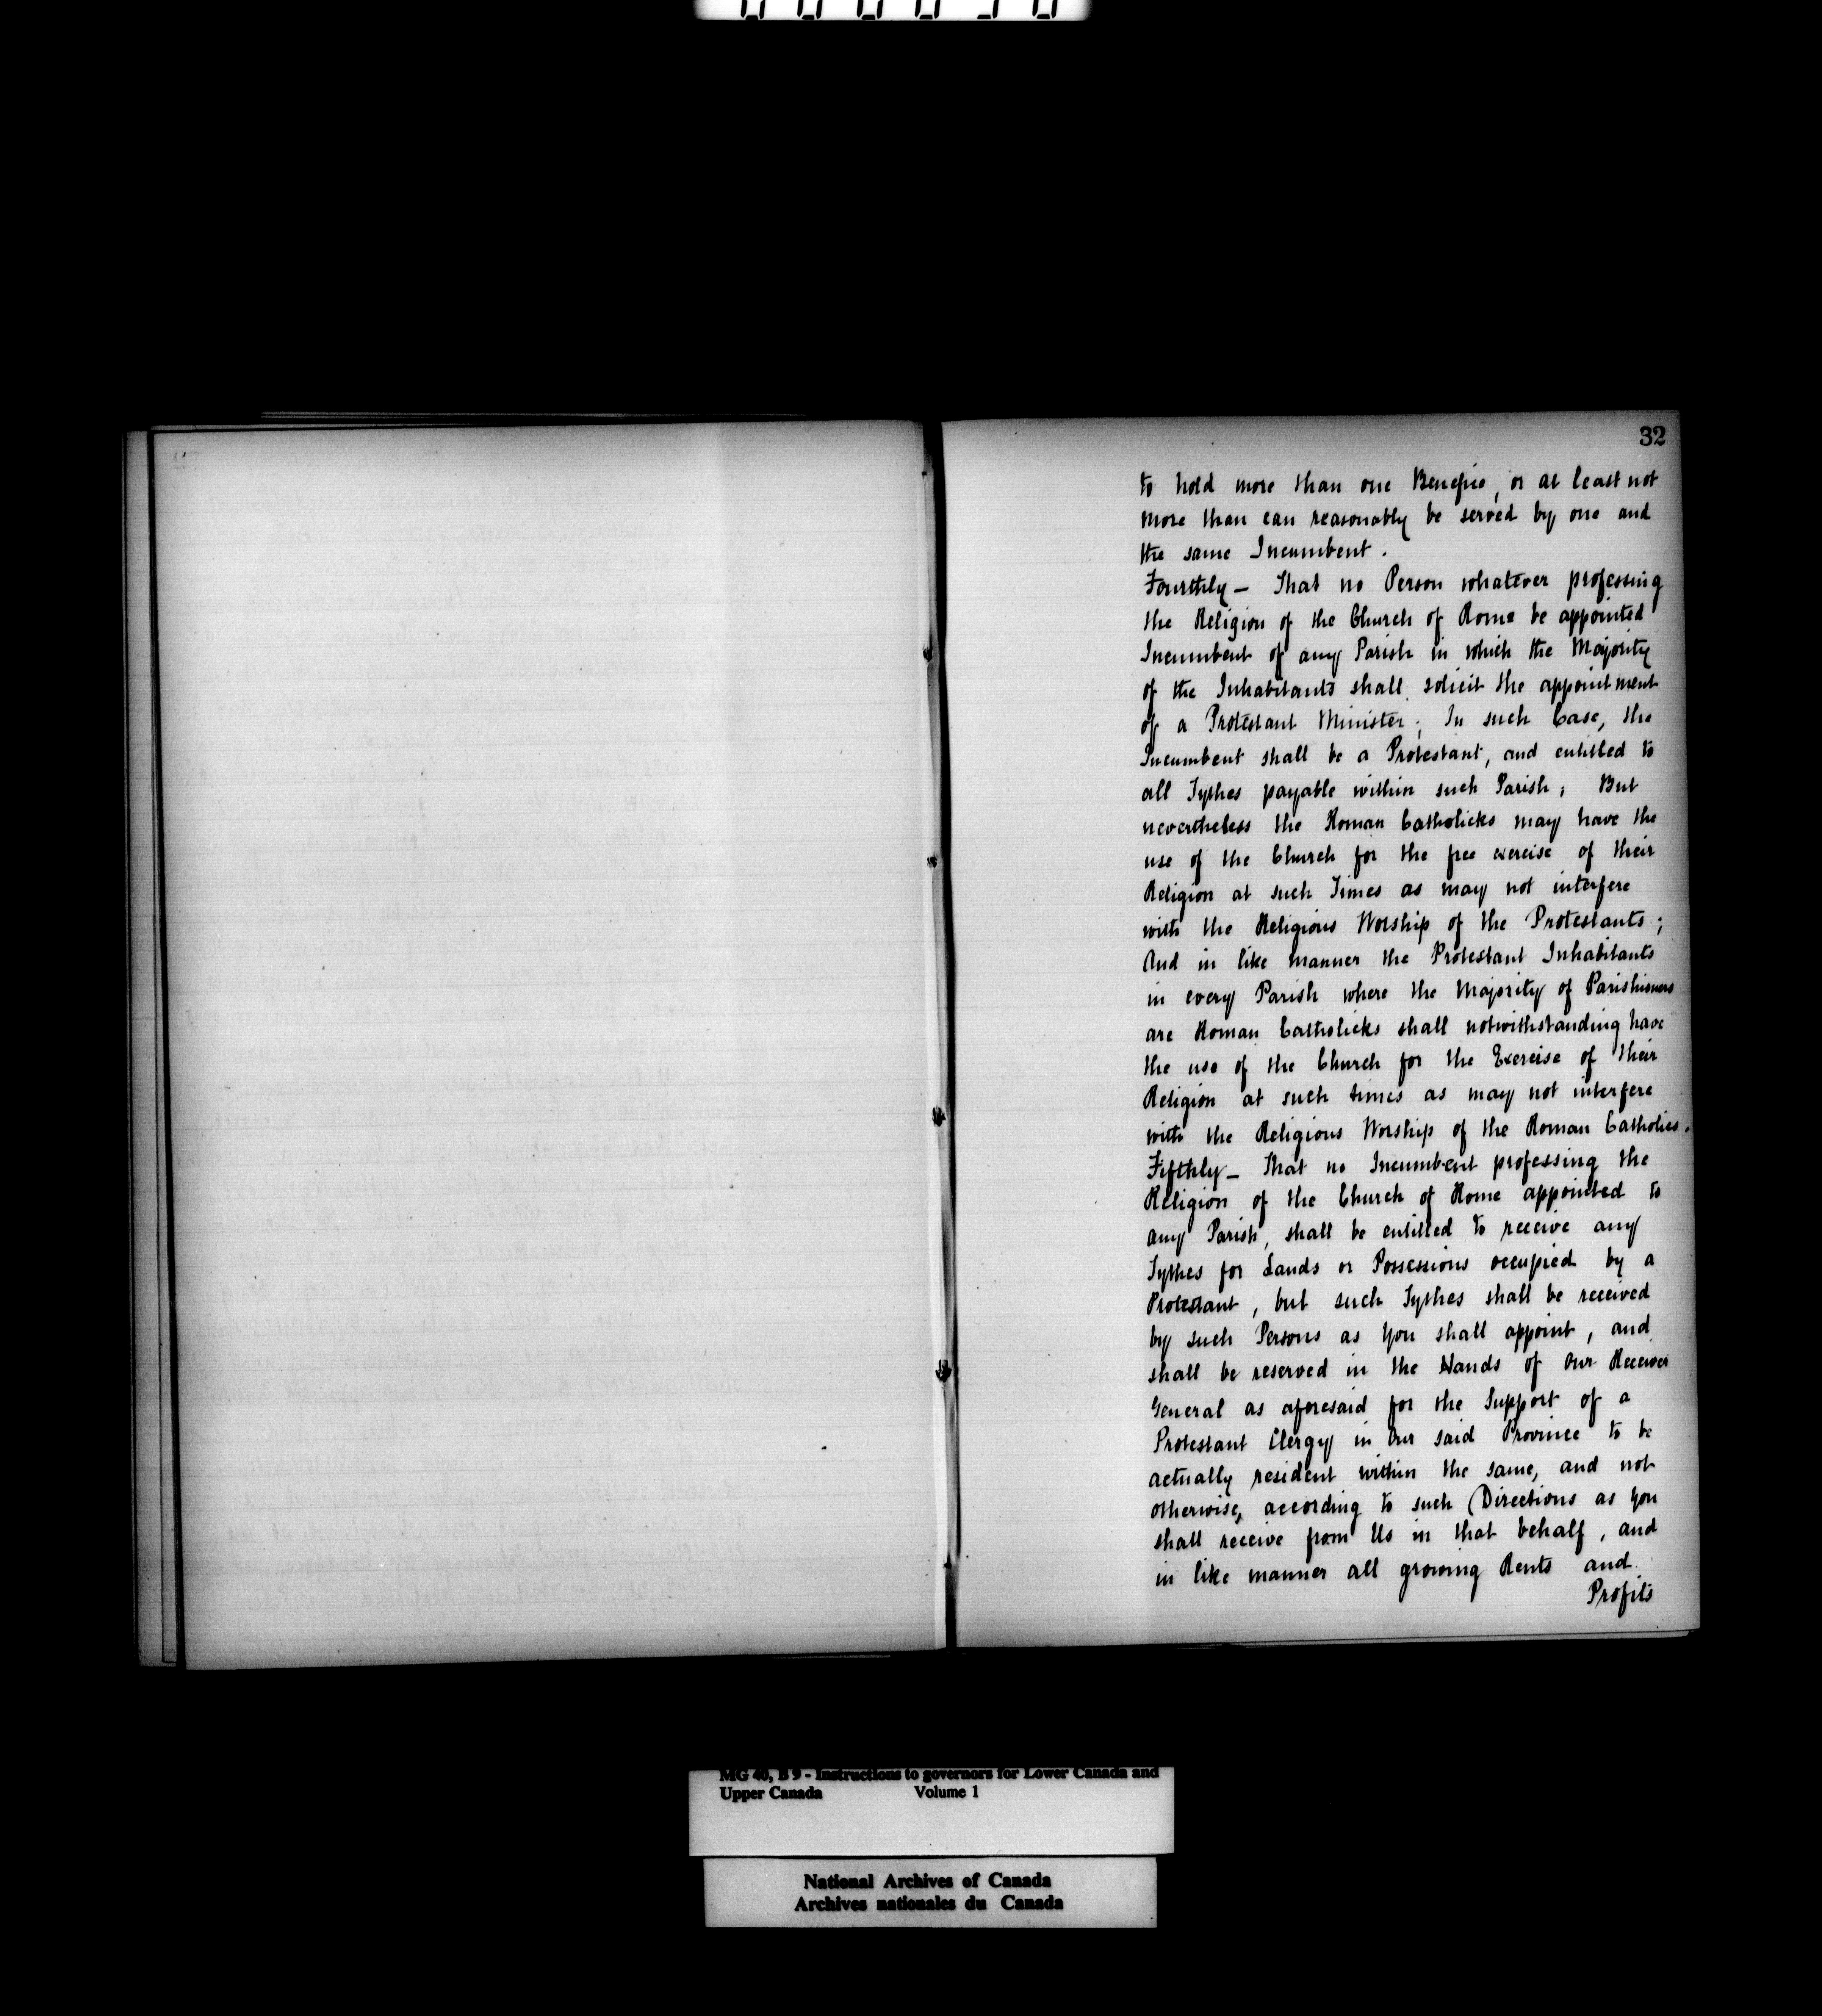 32
to hold more than one Benefice, or at least not
more than can reasonably be served by one and
the same Incumbent.
Fourthly — That no Person whatever professing
the Religion of the Church of Rome be appointed
Incumbent of any Parish in which the Majority
of the Inhabitants shall solicit the appointment
of a Protestant Minister; In such Case, the
Incumbent shall be a Protestant, and entitled to
all Tythes payable within such Parish; But
nevertheless the Roman Catholicks may have the
use of the Church for the free exercise of their
Religion at such Times as may not interfere
with the Religious Worship of the Protestants;
And in like manner the Protestant Inhabitants
in every Parish where the Majority of Parishioners
are Roman Catholicks shall notwithstanding have
the use of the Church for the Exercise of their
Religion at such times as may not interfere
with the Religious Worship of the Roman Catholics.
Fifthly — That no Incumbent professing the
Religion of the Church of Rome appointed to
any Parish, shall be entitled to receive any
Tythes for Lands or Possessions occupied by a
Protestant, but such Tythes shall be received
by such Persons as you shall appoint, and
shall be reserved in the Hands of Our Receiver
General as aforesaid for the Support of a
Protestant Clergy in Our said Province to be
actually resident within the same, and not
otherwise, according to such Directions as you
shall receive from Us in that behalf, and
in like manner all growing Rents and
Profits
MG 40, B 9 - Instructions to governors for Lower Canada and
Upper Canada Volume 1
National Archives of Canada
Archives nationales du Canada